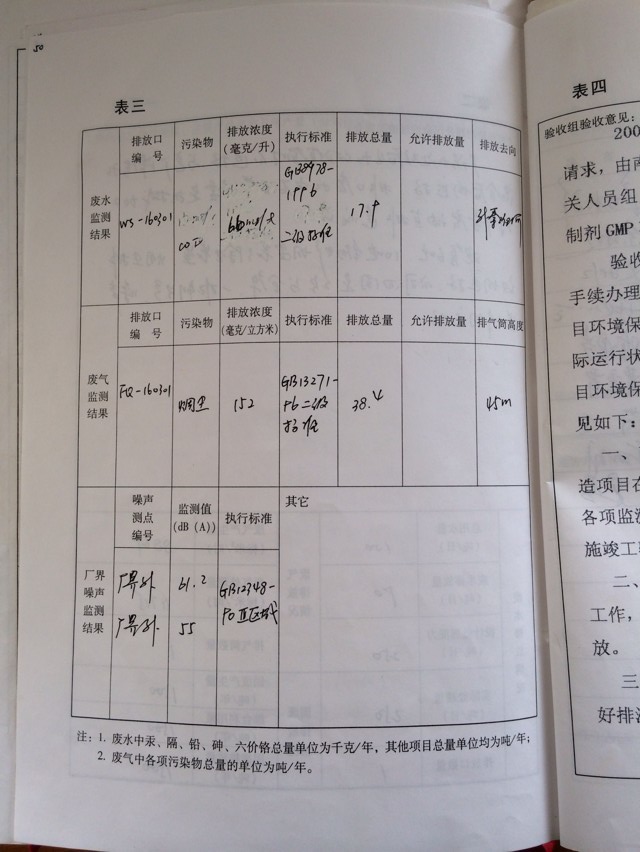 50
表三
排放口编号 污染物 排放浓度(毫克/升) 执行标准 排放总量 允许排放量 排放去向
废水监测结果 WS-160301 COD 66mg/L GB8978-1996 二级标准 17.9
排放口编号 污染物 排放浓度(毫克/立方米) 执行标准 排放总量 允许排放量 排气筒高度
废气监测结果 FQ-160301 烟尘 152 GB13271-96二级标准 38.4 45m
噪声测点编号 监测值(dB(A)) 执行标准 其它
厂界噪声监测结果 厂界外 61.2 GB12348-90 Ⅱ区域
厂界外 55
注：1. 废水中汞、隔、铅、砷、六价铬总量单位为千克/年，其他项目总量单位均为吨/年；
2. 废气中各项污染物总量的单位为吨/年。
表四
验收组验收意见：
200
请求，由南
关人员组
制剂GMP
验收
手续办理
目环境保
际运行状
目环境保
见如下：
一、
造项目在
各项监测
施竣工
二、
工作，
放。
三
好排污